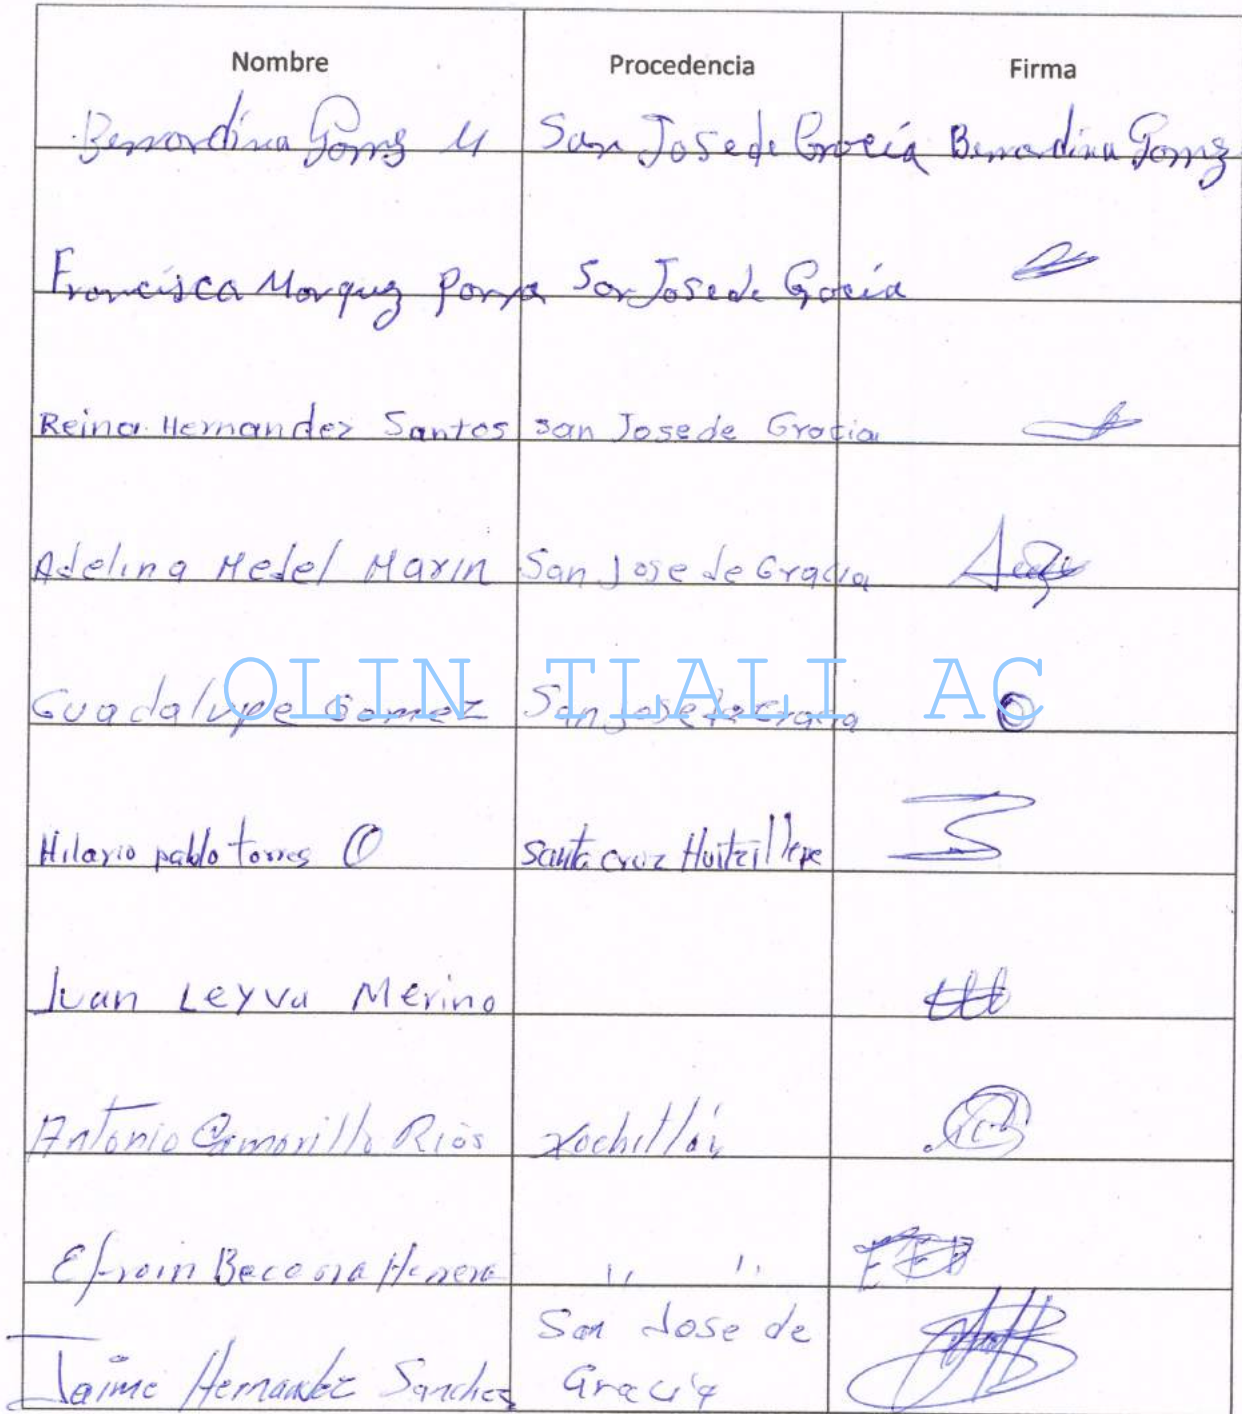 Nombre Procedencia Firma
Bernardina Gomz M San Jose de Gracia Bernardina Gomz
Francisca Morquez San Jose de Gracia
Reina Hernandez Santos san Jose de Gracia
Adelina Medel Marin San Jose de Gracia
OLIN TLALI AC
Guadalupe Gomez San jose de Gracia
Hilario pablo torres O santa cruz Huitziltepec
Juan Leyva Merino
Antonio Camarillo Rios Xochitlán
Efrain Herrera " "
San Jose de
Jaime Hernandez Sanchez Gracia